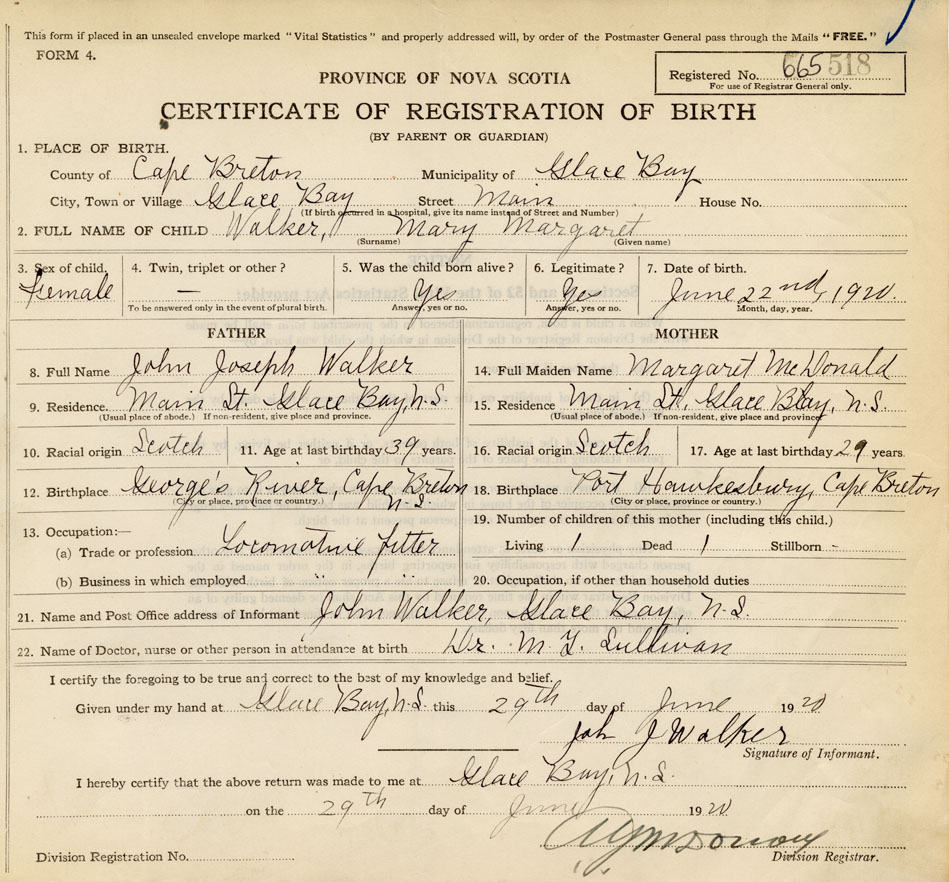 This form if placed in an unsealed envelope marked "Vital Statistics" and properly addressed will, by order of the Postmaster General pass through the Mails "FREE."
FORM 4.
Registered No. 665518
For use of Registrar General only.
PROVINCE OF NOVA SCOTIA
CERTIFICATE OF REGISTRATION OF BIRTH
(BY PARENT OR GUARDIAN)
1. PLACE OF BIRTH.
County of Cape Breton Municipality of Glace Bay
City, Town or Village Glace Bay Street Main House No.
(If birth occurred in a hospital, give its name instead of Street and Number)
2. FULL NAME OF CHILD Walker, Mary Margaret
(Surname) (Given name)
3. Sex of child. 4. Twin, triplet or other? 5. Was the child born alive? 6. Legitimate? 7. Date of birth.
Female — Yes Yes June 22nd, 1920.
To be answered only in the event of plural birth. Answer, yes or no. Answer, yes or no. Month, day, year.
FATHER MOTHER
8. Full Name John Joseph Walker 14. Full Maiden Name Margaret McDonald
9. Residence. Main St. Glace Bay, N.S. 15. Residence Main St. Glace Bay, N.S.
(Usual place of abode.) If non-resident, give place and province. (Usual place of abode.) If non-resident, give place and province
10. Racial origin Scotch 11. Age at last birthday 39 years. 16. Racial origin Scotch 17. Age at last birthday 29 years.
12. Birthplace George's River, Cape Breton N.S. 18. Birthplace Port Hawkesbury, Cape Breton
(City or place, province or country.) (City or place, province or country.)
13. Occupation:— 19. Number of children of this mother (including this child.)
(a) Trade or profession. Locomotive fitter Living 1 Dead 1 Stillborn -
(b) Business in which employed " " 20. Occupation, if other than household duties
21. Name and Post Office address of Informant John Walker, Glace Bay, N.S.
22. Name of Doctor, nurse or other person in attendance at birth Dr. M. T. Sullivan
I certify the foregoing to be true and correct to the best of my knowledge and belief.
Given under my hand at Glace Bay, N.S. this 29th day of June 1920
John J Walker
Signature of Informant.
I hereby certify that the above return was made to me at Glace Bay, N.S.
on the 29th day of June 1920
Division Registration No. Division Registrar.